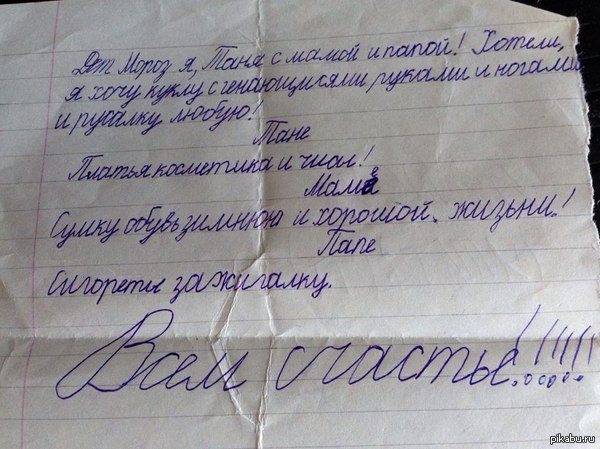 Дет Мороз я, Таня с мамой и папой! Хотели,
я хочу куклу с генающимисями руками и ногами
и русалку любую!
Тане
Платья косметика и
Маме
Сумку обувь зимнюю и хорошой. жизьни!
Папе
Сигореты зажигалку.
Всем счастье!!!!!!
pikabu.ru